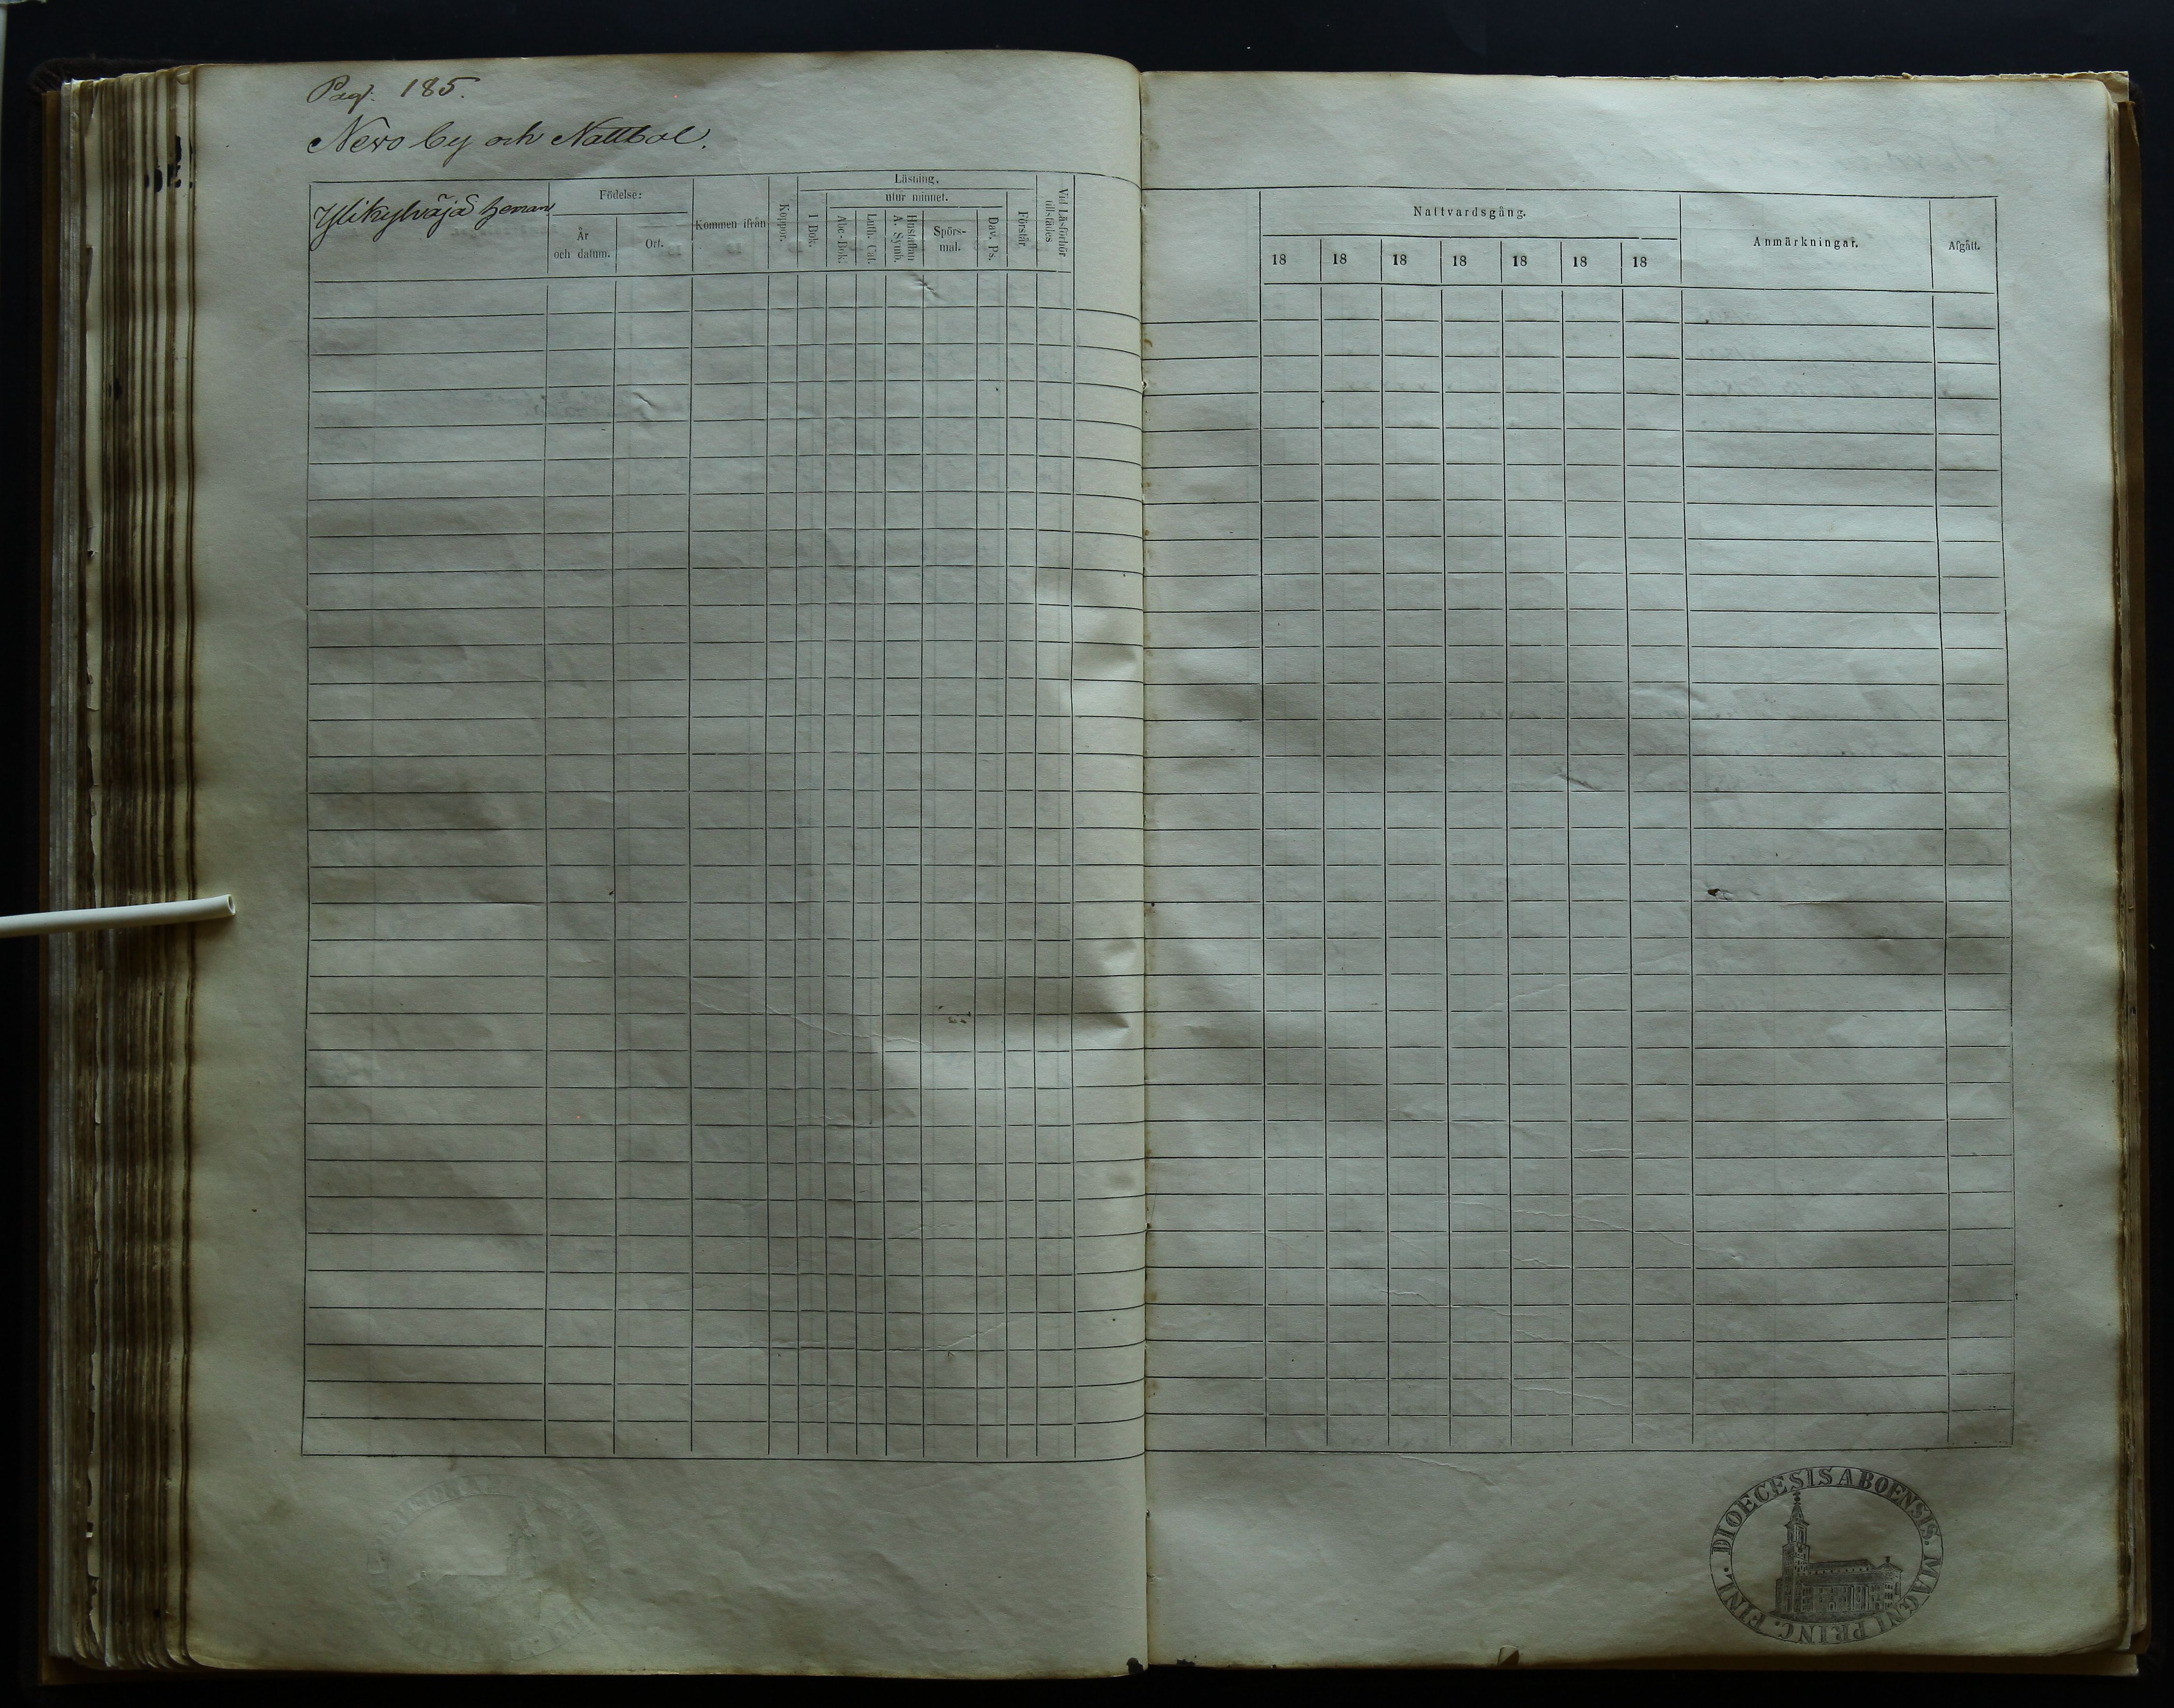 Pag. 185.
Nero by och Nattbol.
Ylikylväjä heman
Födelse:
År
och datum.
Ort.
Kommen ifrån
Koppor.
Läsning,
utur minnet.
I Bok.
Abc-Bok.
Luth. Cat.
Hustaflan
A. Symb.
Spörs-
mal.
Dav. Ps.
Förstår
Vid Läsförhör
tillstädes
Nattvardsgång.
18 18 18 18 18 18 18
Anmärkningar.
Afgått.
DIOECESIS ABOENSIS. MAGNI PRINC. FINL.